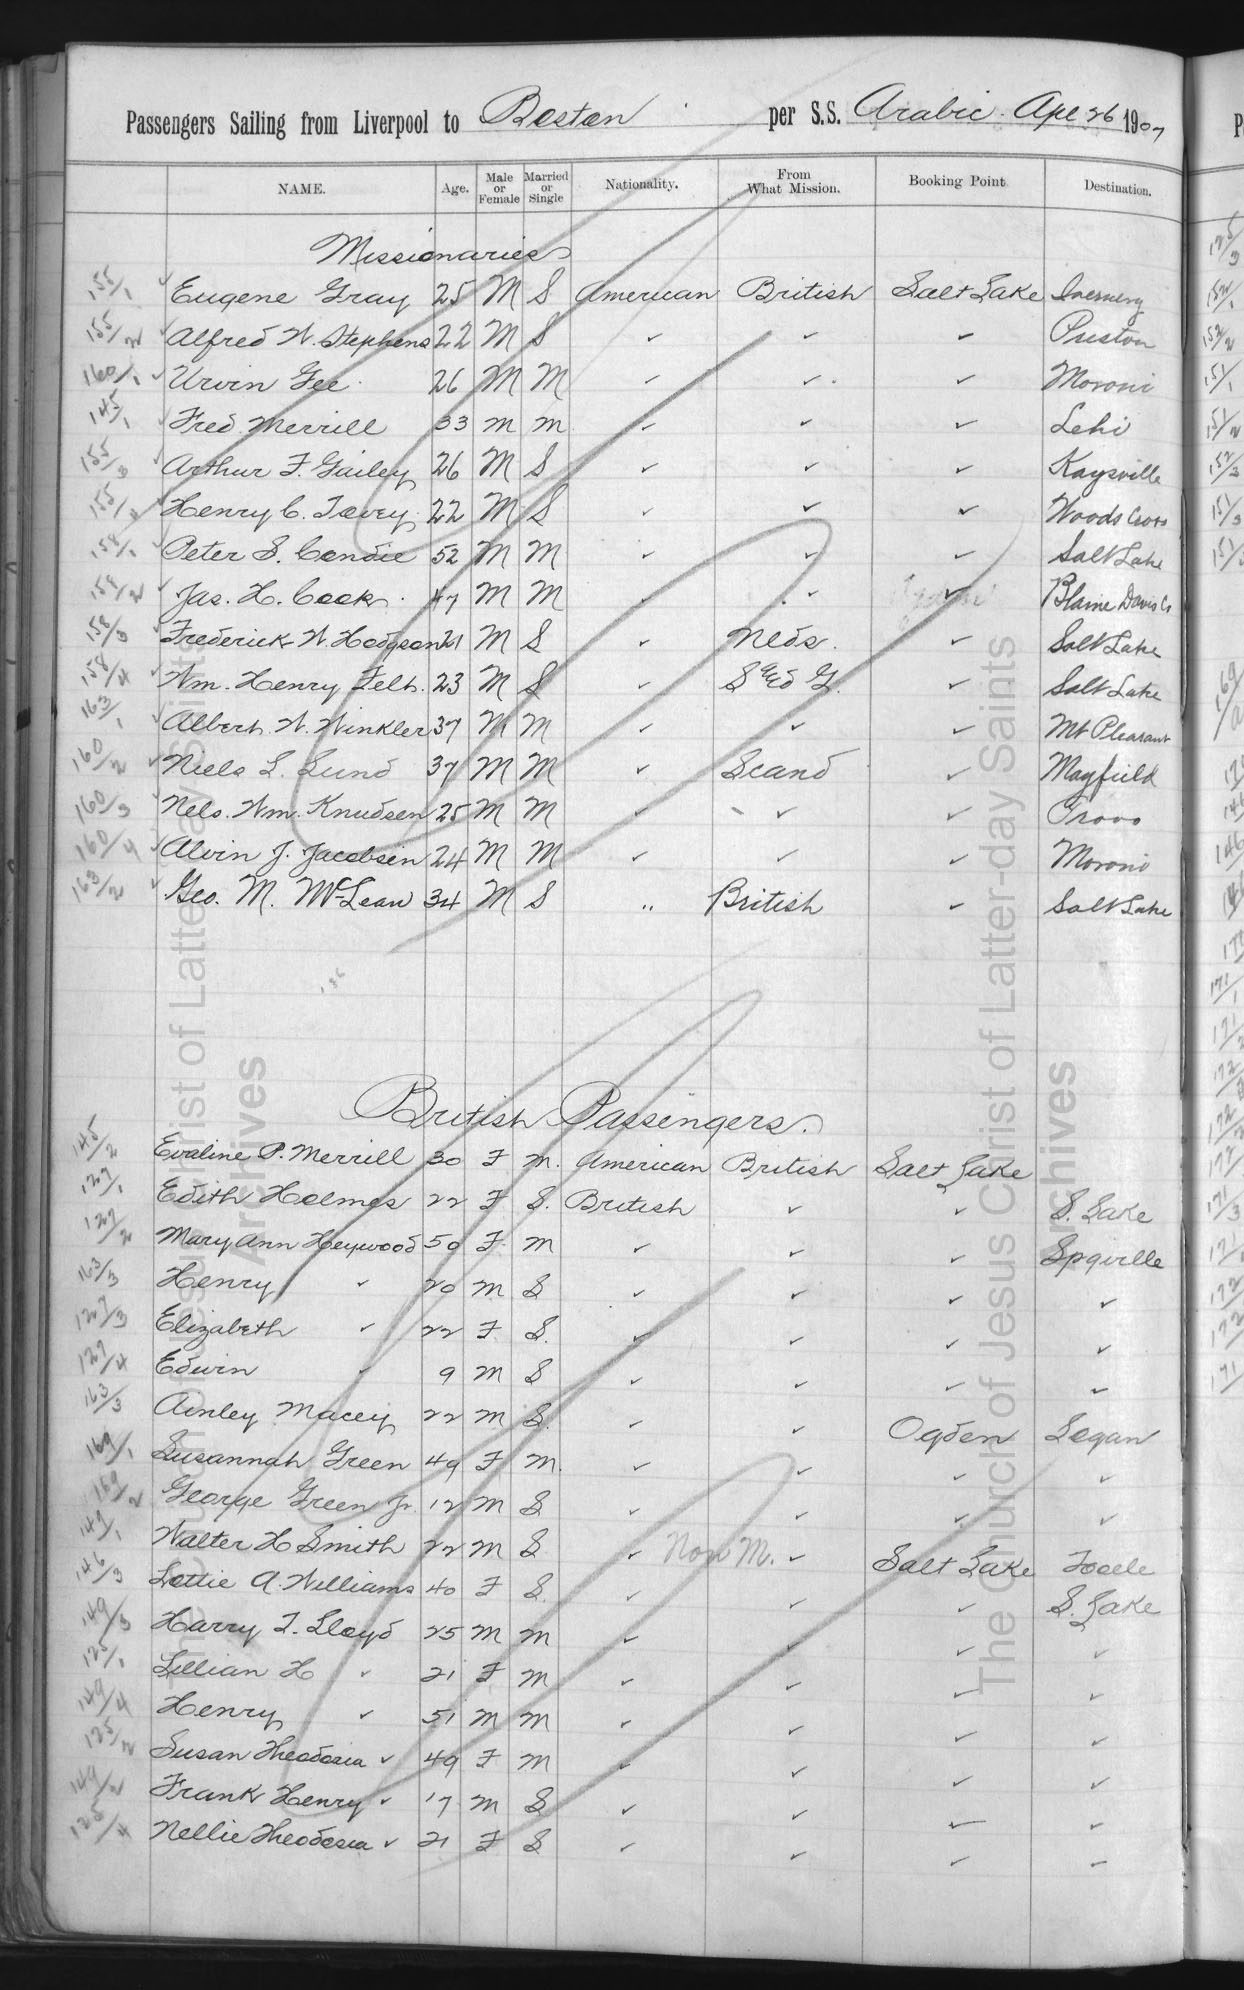 Passengers Sailing from Liverpool to Boston per S.S. Arabic. Apl 26 1907
NAME. Age. Male or Female Married or Single Nationality. From What Mission. Booking Point Destination.
Missionaries
155/1 ✓ Eugene Gray 25 M S American British Salt Lake
155/2 ✓ Alfred W. Stephens 22 M S ✓ ✓ ✓ Preston
160/1 ✓ Urvin Gee 26 M M ✓ ✓ ✓ Moroni
145/1 ✓ Fred Merrill 33 m m ✓ ✓ ✓ Lehi
155/3 ✓ Arthur F. Gailey 26 M S ✓ ✓ ✓ Kaysville
155/4 ✓ Henry C. Tovey 22 M S ✓ ✓ ✓ Woods Cross
158/1 ✓ Peter S. Condie 52 M M ✓ ✓ ✓ Salt Lake
158/2 ✓ Jas. H. Cook 47 M M ✓ ✓ ✓ Blaine Davis Co
158/3 ✓ Frederick W. Hodgson 21 M S ✓ Neds. ✓ Salt Lake
158/4 ✓ Wm. Henry Felt. 23 M S ✓ S & G. ✓ Salt Lake
163/1 ✓ Albert W. Winkler 37 M M ✓ ✓ ✓ Mt Pleasant
160/2 ✓ Niels L. Lund 37 M M ✓ Scand ✓ Mayfield
160/3 ✓ Nels. Wm. Knudsen 25 M M ✓ ✓ ✓ Provo
160/4 ✓ Alvin J. Jacobsen 24 M M ✓ ✓ ✓ Moroni
163/2 ✓ Geo. M. McLean 34 M S " British ✓ Salt Lake
British Passengers.
145/2 Evaline P. Merrill 30 F m. American British Salt Lake
127/1 Edith Holmes 22 F S. British ✓ ✓ S. Lake
127/2 Mary Ann Heywood 50 F m ✓ ✓ ✓ Spgville
163/3 Henry ✓ 20 m S ✓ ✓ ✓ ✓
127/3 Elizabeth ✓ 22 F S. ✓ ✓ ✓ ✓
127/4 Edwin ✓ 9 m S ✓ ✓ ✓ ✓
163/3 Ainley Macey 22 m S. ✓ ✓ Ogden Logan
169/1 Susannah Green 49 F m. ✓ ✓ ✓ ✓
169/2 George Green Jr. 12 m S ✓ ✓ ✓ ✓
149/1 Walter H Smith 22 m S ✓ Non M. ✓ Salt Lake Tooele
146/3 Lottie A. Williams 40 F S. ✓ ✓ ✓ S. Lake
149/3 Harry T. Lloyd 25 m m ✓ ✓ ✓ ✓
125/1 Lillian H ✓ 21 F m ✓ ✓ ✓ ✓
149/4 Henry ✓ 51 m m ✓ ✓ ✓ ✓
125/2 Susan Theodosia ✓ 49 F m ✓ ✓ ✓ ✓
149/2 Frank Henry ✓ 17 m S ✓ ✓ ✓ ✓
125/4 Nellie Theodosia ✓ 21 F S ✓ ✓ ✓ ✓
The Church of Jesus Christ of Latter-day Saints
Archives
The Church of Jesus Christ of Latter-day Saints
Archives